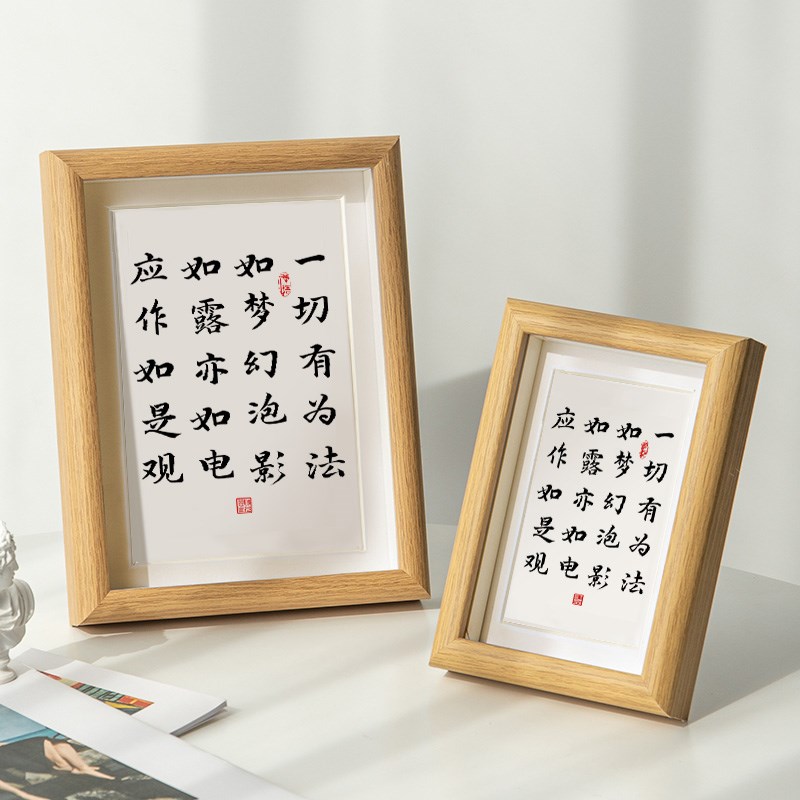 一切有为法
如梦幻泡影
如露亦如电
应作如是观
一切有为法
如梦幻泡影
如露亦如电
应作如是观